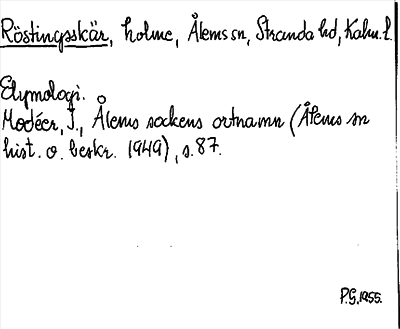 Röstingsskär, holme, Ålems sn, Stranda hd, Kalm. l.
Etymologi.
Modéer, I., Ålems sockens ortnamn (Ålems sn
hist. o. beskr. 1949), s. 87.
P.G. 1955.